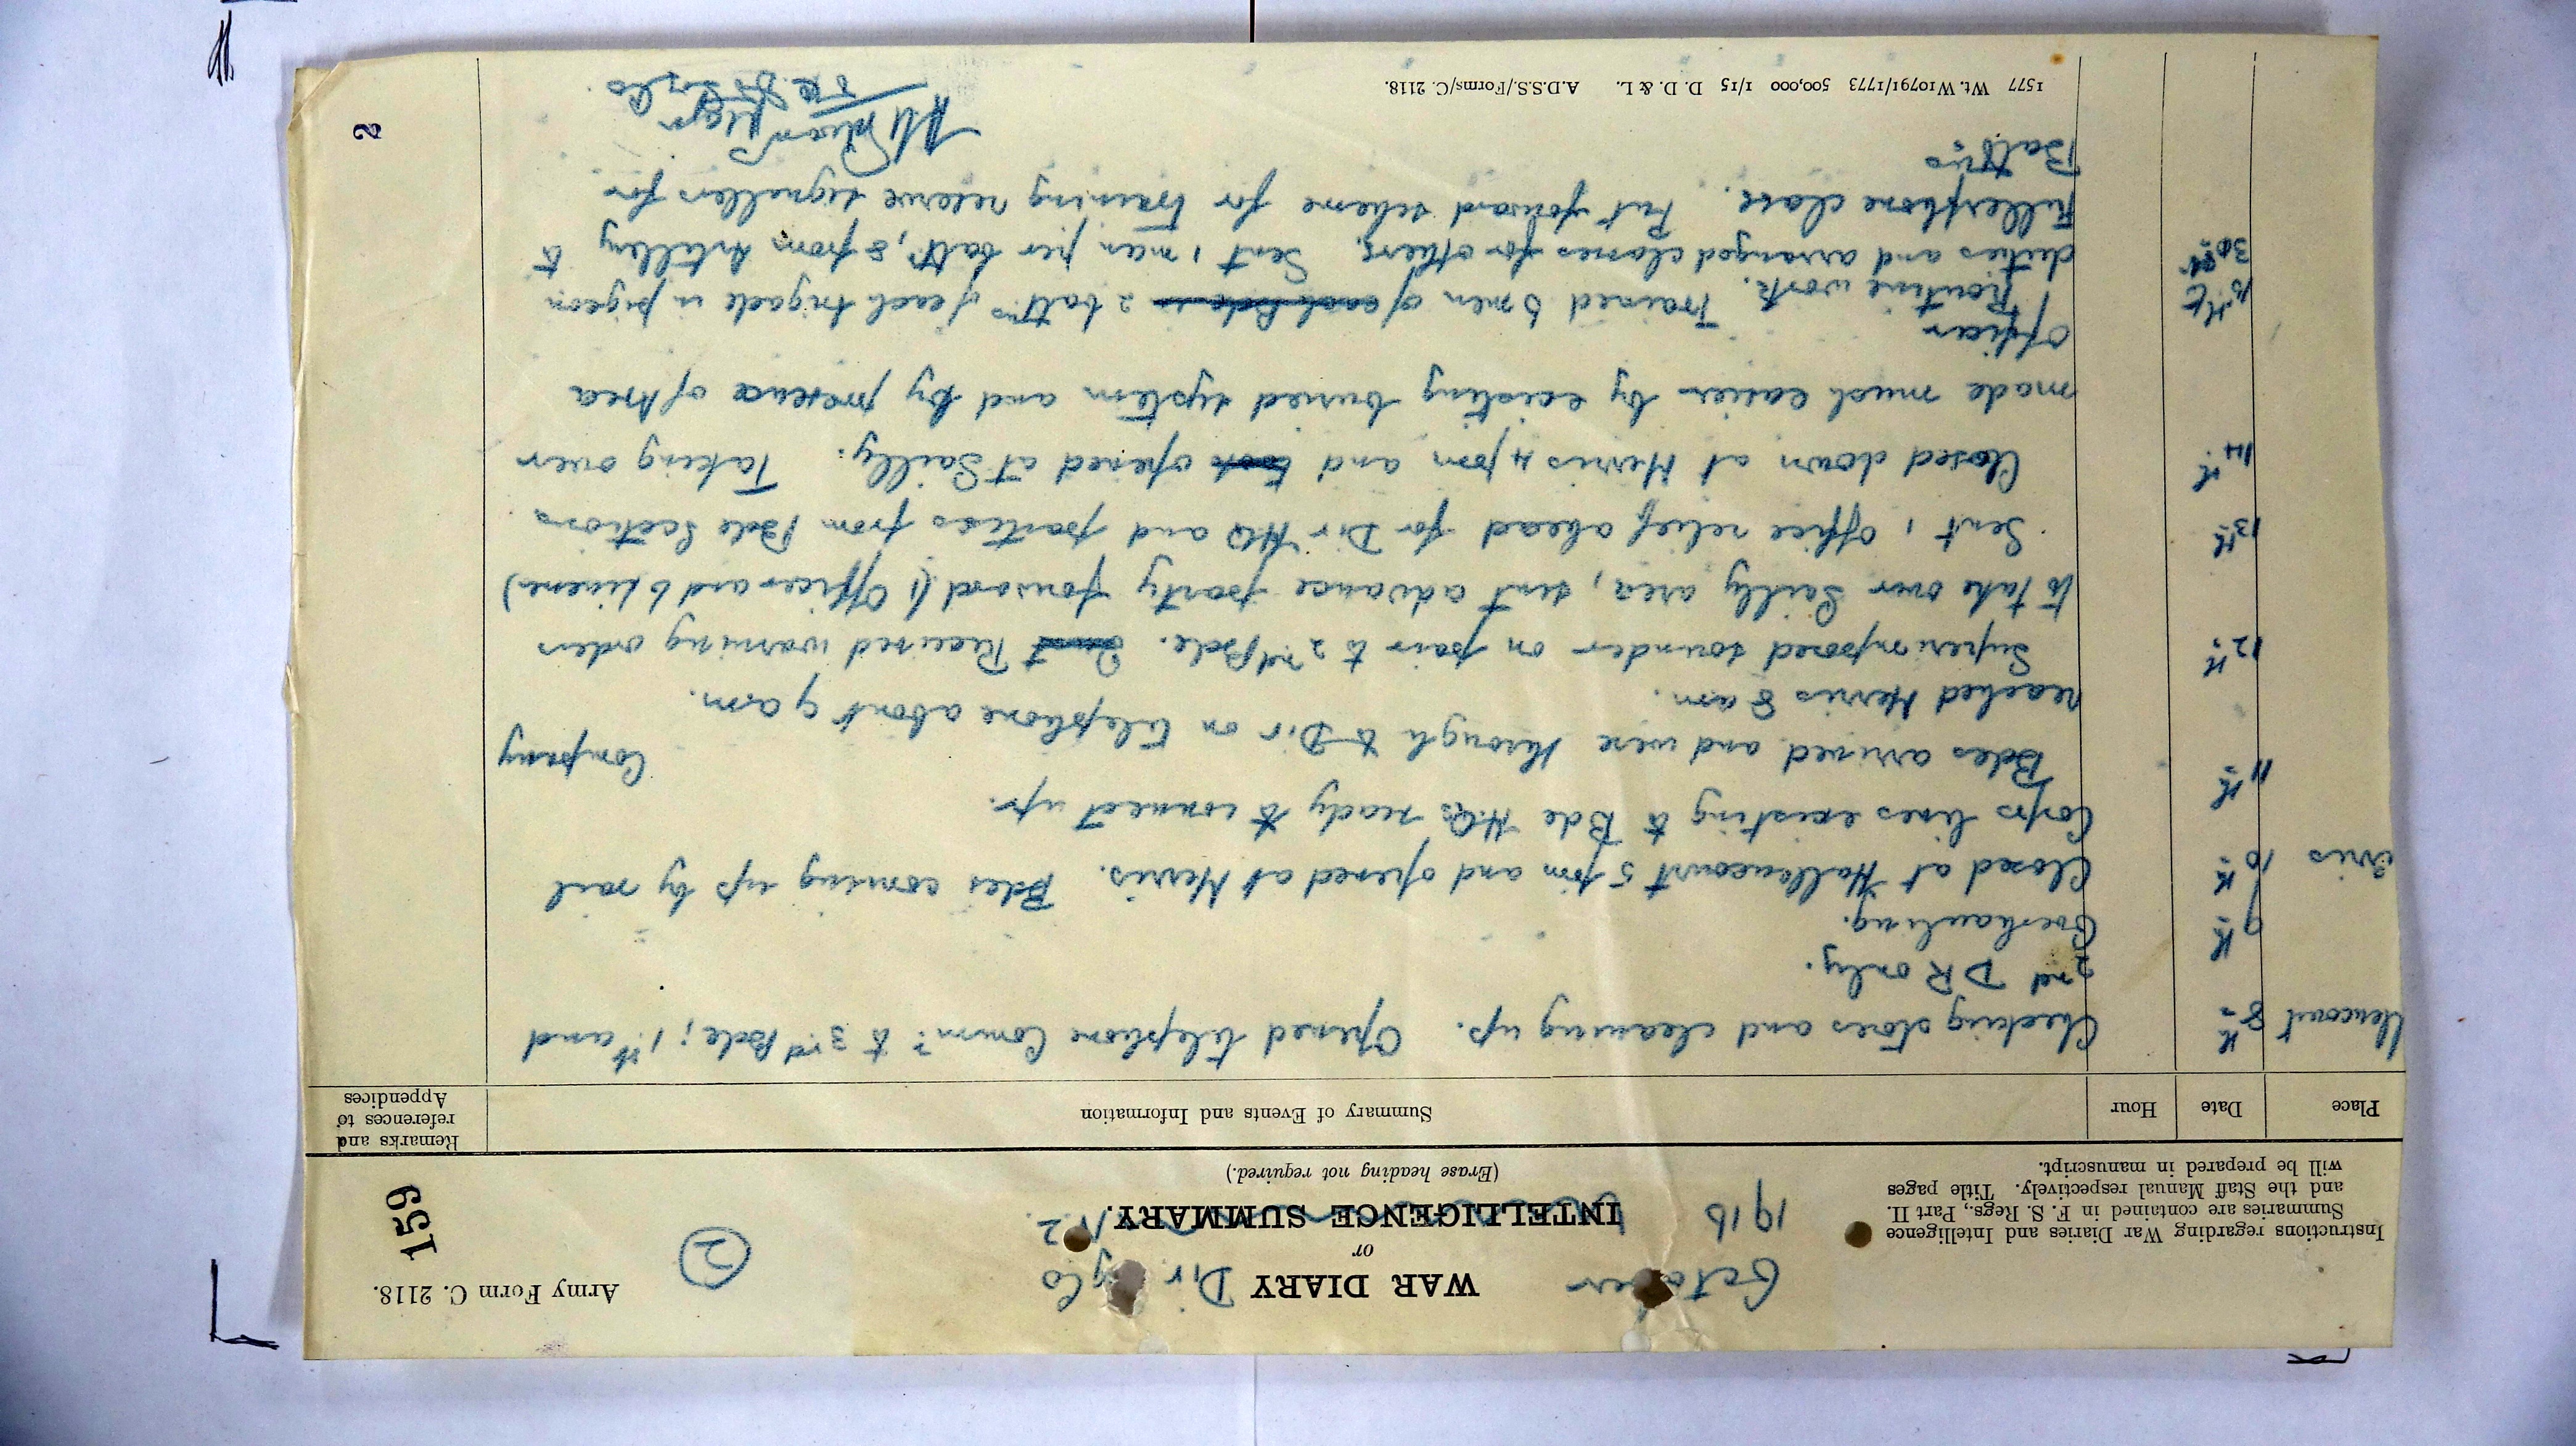 Army Form C. 2118.
159
2
October WAR DIARY Div
or
1916 INTELLIGENCE SUMMARY. N.Z.
(Erase heading not required.)
Instructions regarding War Diaries and Intelligence
Summaries are contained in F. S. Regs., Part II.
and the Staff Manual respectively. Title pages
will be prepared in manuscript.
Place Date Hour Summary of Events and Information Remarks and
references to
Appendices
llencourt 8th Checking stores and cleaning up. Opened telephone Commn to 3rd Bde; 1st and
2nd DR only.
9th Overhauling.
10th Closed at Hallencourt 5 pm and opened at Merris. Bdes coming up by rail
Corps lines existing to Bde HQs ready to connect up.
11th Bdes arrived and were through to Div on telephone about 9 am. Company
reached Merris 8 am.
12th Superimposed sounder on pair to 2nd Bde. Received warning order
to take over Sailly area, sent advance party forward (1 Officer and 6 linemen)
13th Sent 1 office relief ahead for Div HQ and parties from Bde Sections
14th Closed down at Merris 4 pm and took opened at Sailly. Taking over
made much easier by existing buried system and by presence of Area
Officer
15th to Routine work. Trained 6 men of each Bde 2 battns of each brigade in pigeon
duties and arranged classes for others. Sent 1 man per batt, 8 from Artillery to
Fullerphone class. Put forward scheme for training reserve signallers for
Battns
Major
1577 Wt. W10791/1773 500,000 1/15 D. D. & L. A.D.S.S./Forms/C. 2118.
2